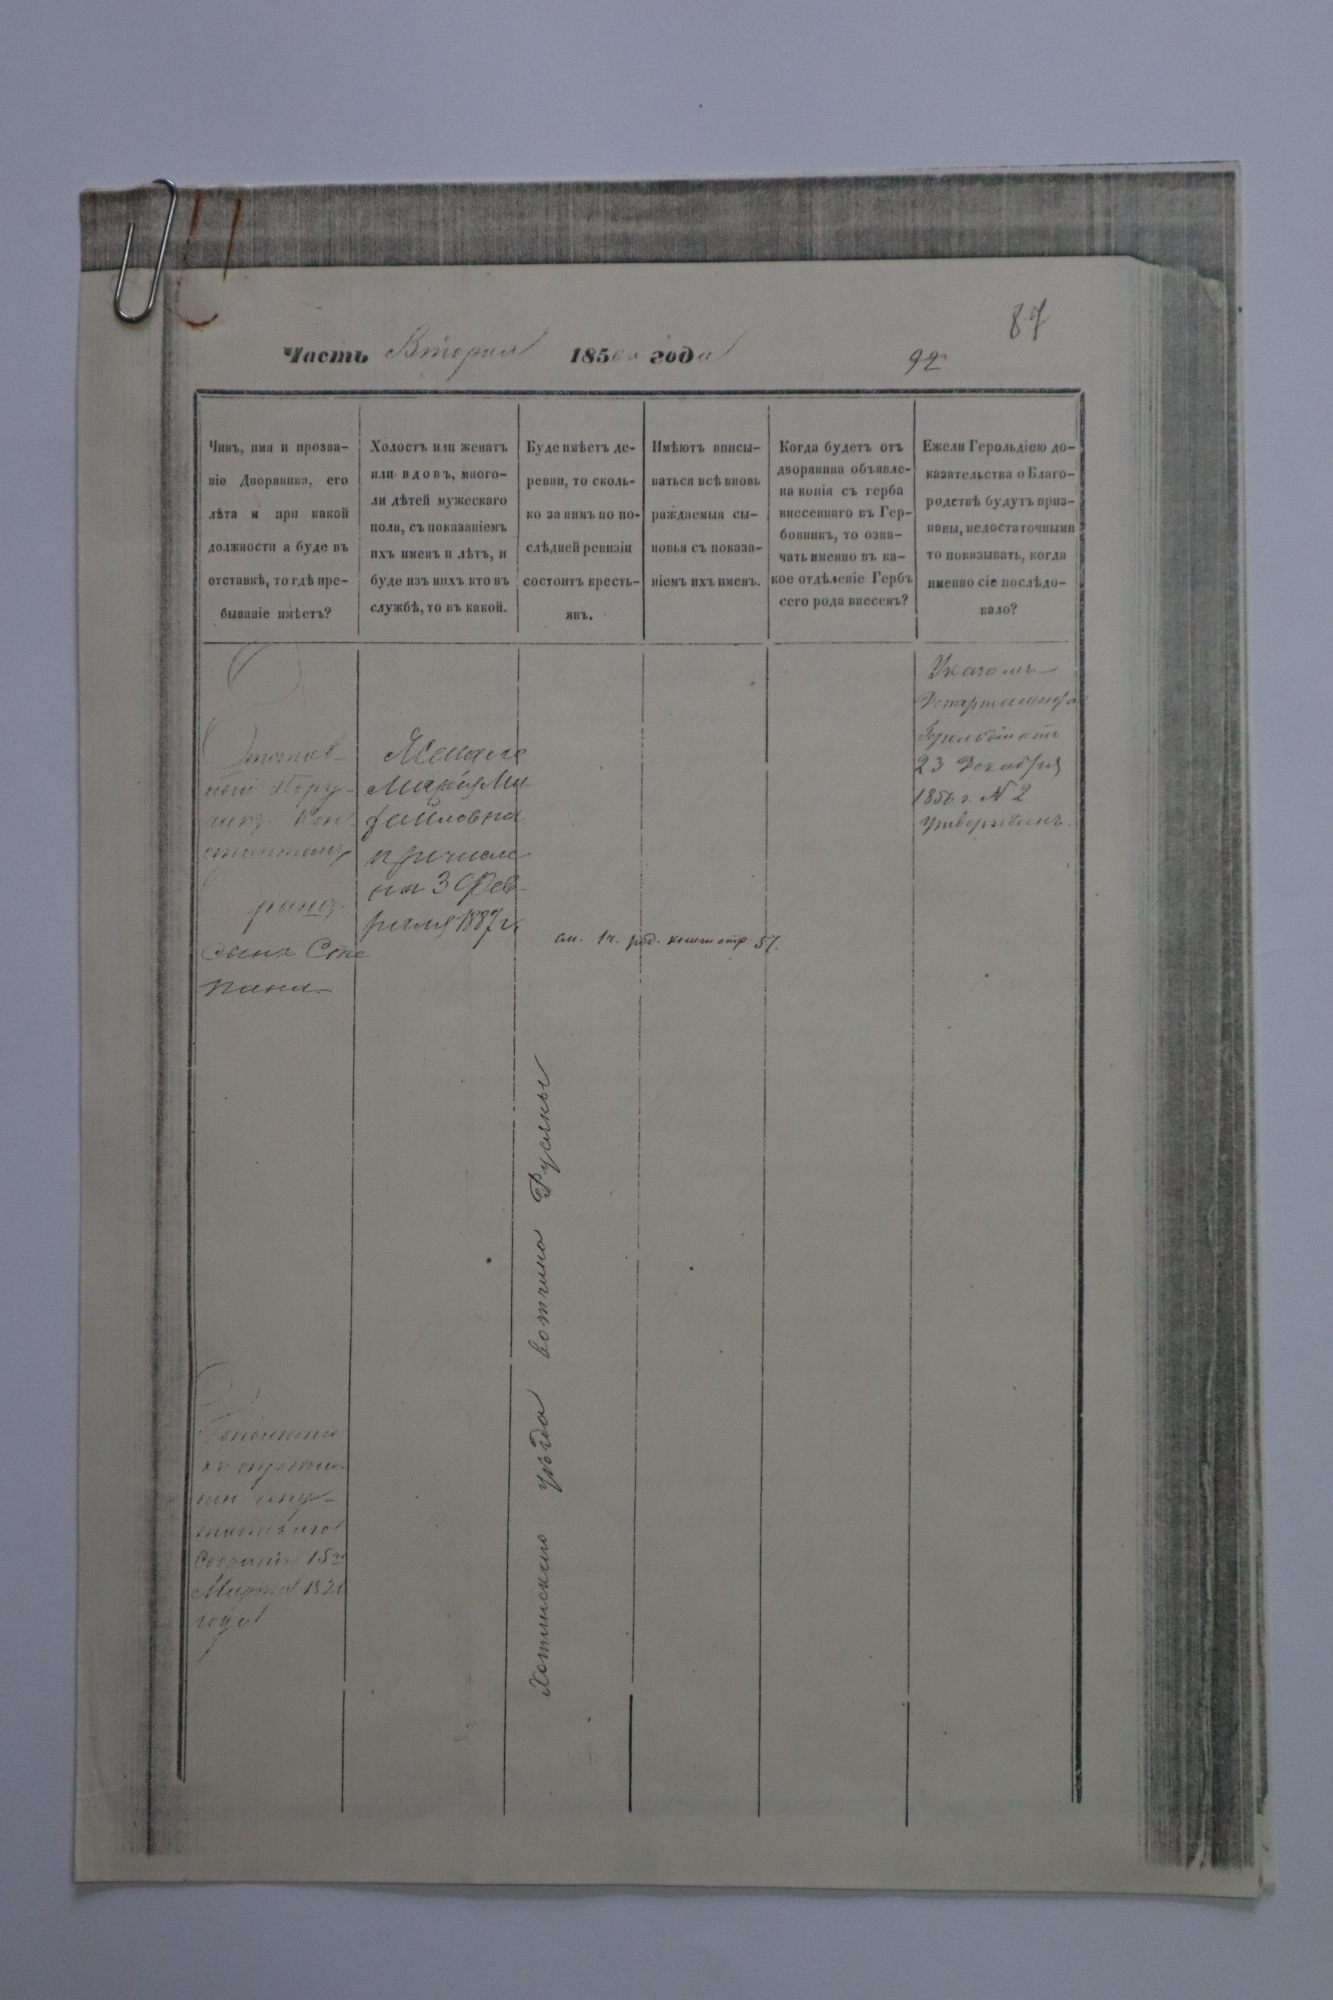 87
Часть Вторая 1856 года
92
Чинъ, имя и прозва-
ніе Дворянина, его
лѣта и при какой
должности а буде въ
отставкѣ, то гдѣ пре-
бываніе имѣетъ?
Холостъ или женатъ
или вдовъ, много-
ли дѣтей мужескаго
пола, съ показаніемъ
ихъ именъ и лѣтъ, и
буде изъ нихъ кто въ
службѣ, то въ какой.
Буде имѣетъ де-
ревни, то сколь-
ко за нимъ по по-
слѣдней ревизіи
состоитъ кресть-
янъ.
Имѣютъ вписы-
ваться всѣ вновь
раждаемыя сы-
новья съ показа-
ніемъ ихъ именъ.
Когда будетъ отъ
дворянина объявле-
на копія съ герба
внесеннаго въ Гер-
бовникъ, то озна-
чать именно въ ка-
кое отдѣленіе Гербъ
сего рода внесенъ?
Ежели Герольдіею до-
казательства о Благо-
родствѣ будутъ приз-
наны, недостаточными
то показывать, когда
именно сіе послѣдо-
вало?
Отстав-
ный Пору-
чикъ Кон
стантинъ
сынъ Сте
пана
Жена его
Марія Ми
хайловна
причисле
на 3 Фев-
раля 1887 г.
см. 1 ч. род. книги стр 57.
Указомъ
Департамента
Герольдіи отъ
23 Декабря
1856 г. № 2
утвержденъ.
Хотинскаго уѣзда вотчина Русяны
Собранія 15го
Марта 1821
года